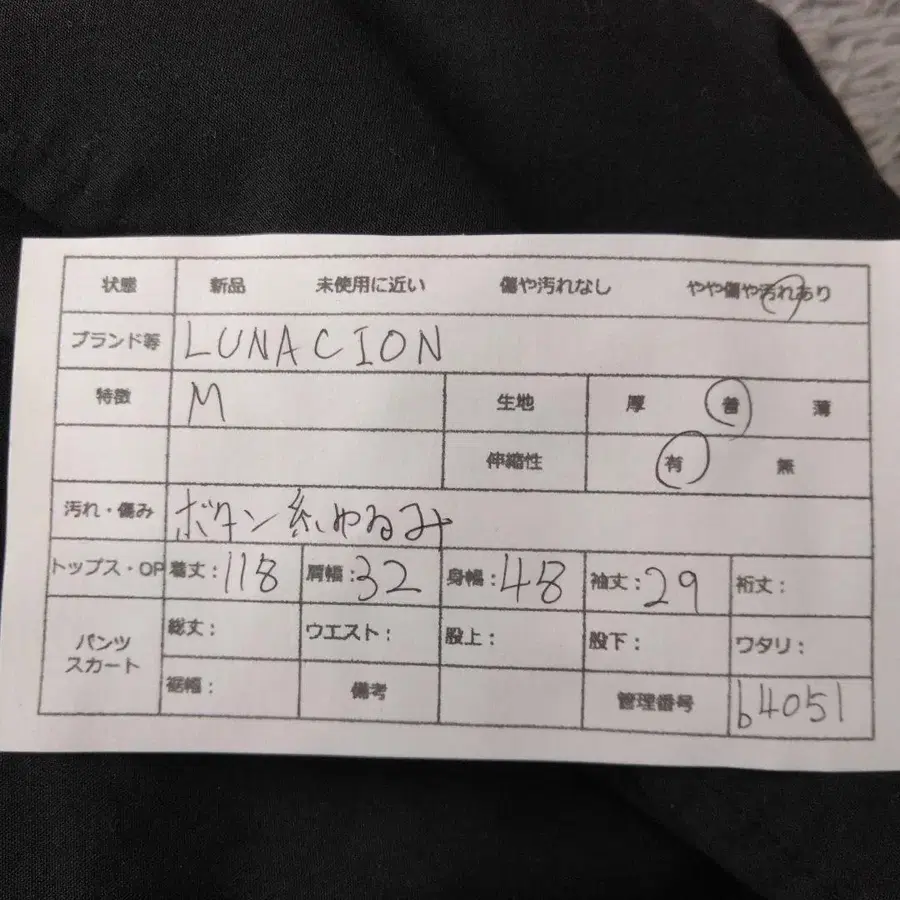 状態 新品 未使用に近い 傷や汚れなし やや傷や汚れあり
ブランド等 LUNACION
特徴 M 生地 厚 普 薄
伸縮性 有 無
汚れ・傷み ボタン糸ゆるみ
トップス・OP 着丈:118 肩幅:32 身幅:48 袖丈:29 裄丈:
パンツ
スカート
総丈: ウエスト: 股上: 股下: ワタリ:
裾幅: 備考 管理番号 b4051